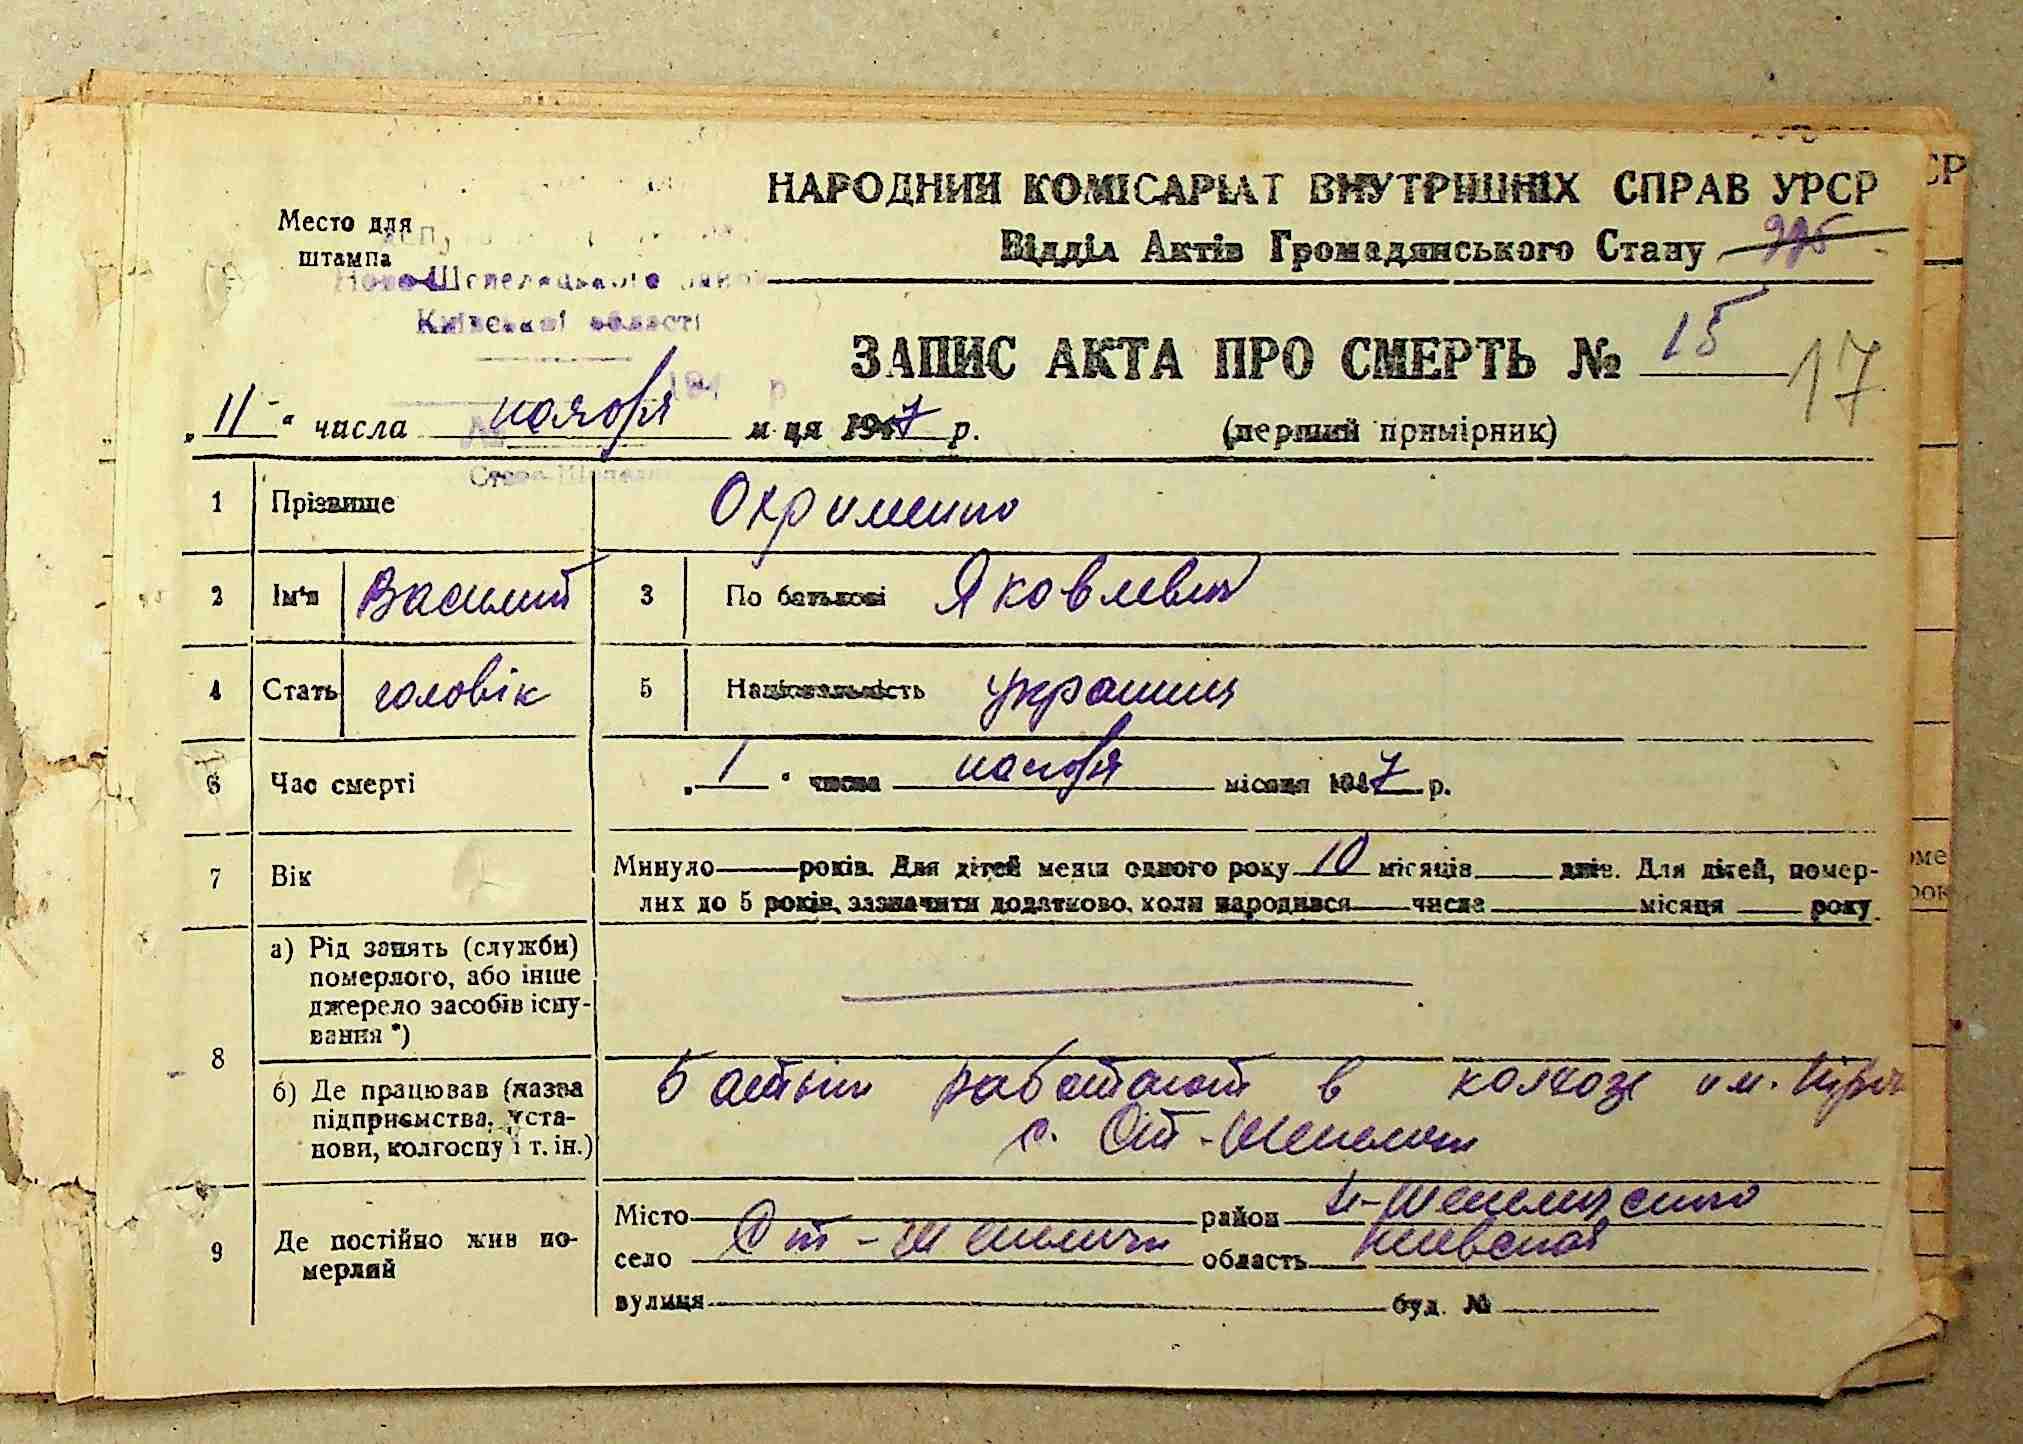 НАРОДНИЙ КОМІСАРІАТ ВНУТРІШНІХ СПРАВ УРСР
Відділ Актів Громадянського Стану
Место для
штампа
Ново-Шепелицького
Київської області
ЗАПИС АКТА ПРО СМЕРТЬ № 15 17
„11“ числа ноября м-ця 1947 р.
(перший примірник)
1 Прізвище Охрименко
2 Ім'я Василий 3 По батькові Яковлевич
4 Стать чоловік 5 Національність украинец
6 Час смерті „1“ числа ноября місяця 1947 р.
7 Вік Минуло — років. Для дітей менш одного року 10 місяців — днів. Для дітей, помер-
лих до 5 років, зазначити додатково, коли народився — числа — місяця — року
8 а) Рід занять (служби)
померлого, або інше
джерело засобів існу-
вання *)
б) Де працював (назва
підприємства, уста-
нови, колгоспу і т. ін.)
Батьки работают в колхозе им.
с. Ст-Шепеличи
9 Де постійно жив по-
мерлий
Місто район Н-Шепелическо
село Ст-Шепеличи область Киевская
вулиця буд. №